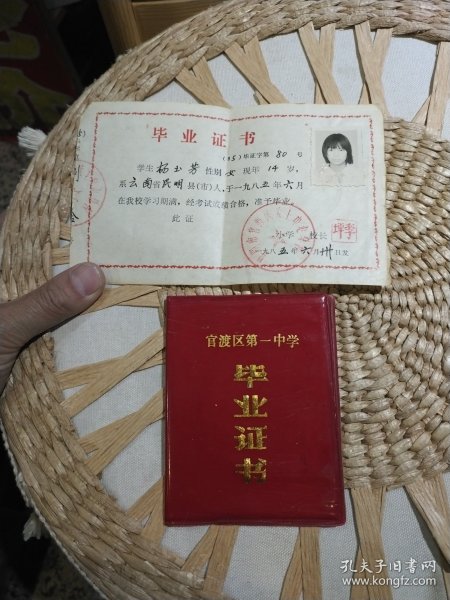 毕业证书
(85)毕证字第 80 号
学生杨玉芳性别女现年14岁,
系云南省昆明县(市)人,于一九八五年六月
在我校学习期满,经考试成绩合格,准予毕业,
此证
小学 校长
一九八五年六月卅日发
官渡区第一中学
毕业证书
孔夫子旧书网
www.kongfz.com